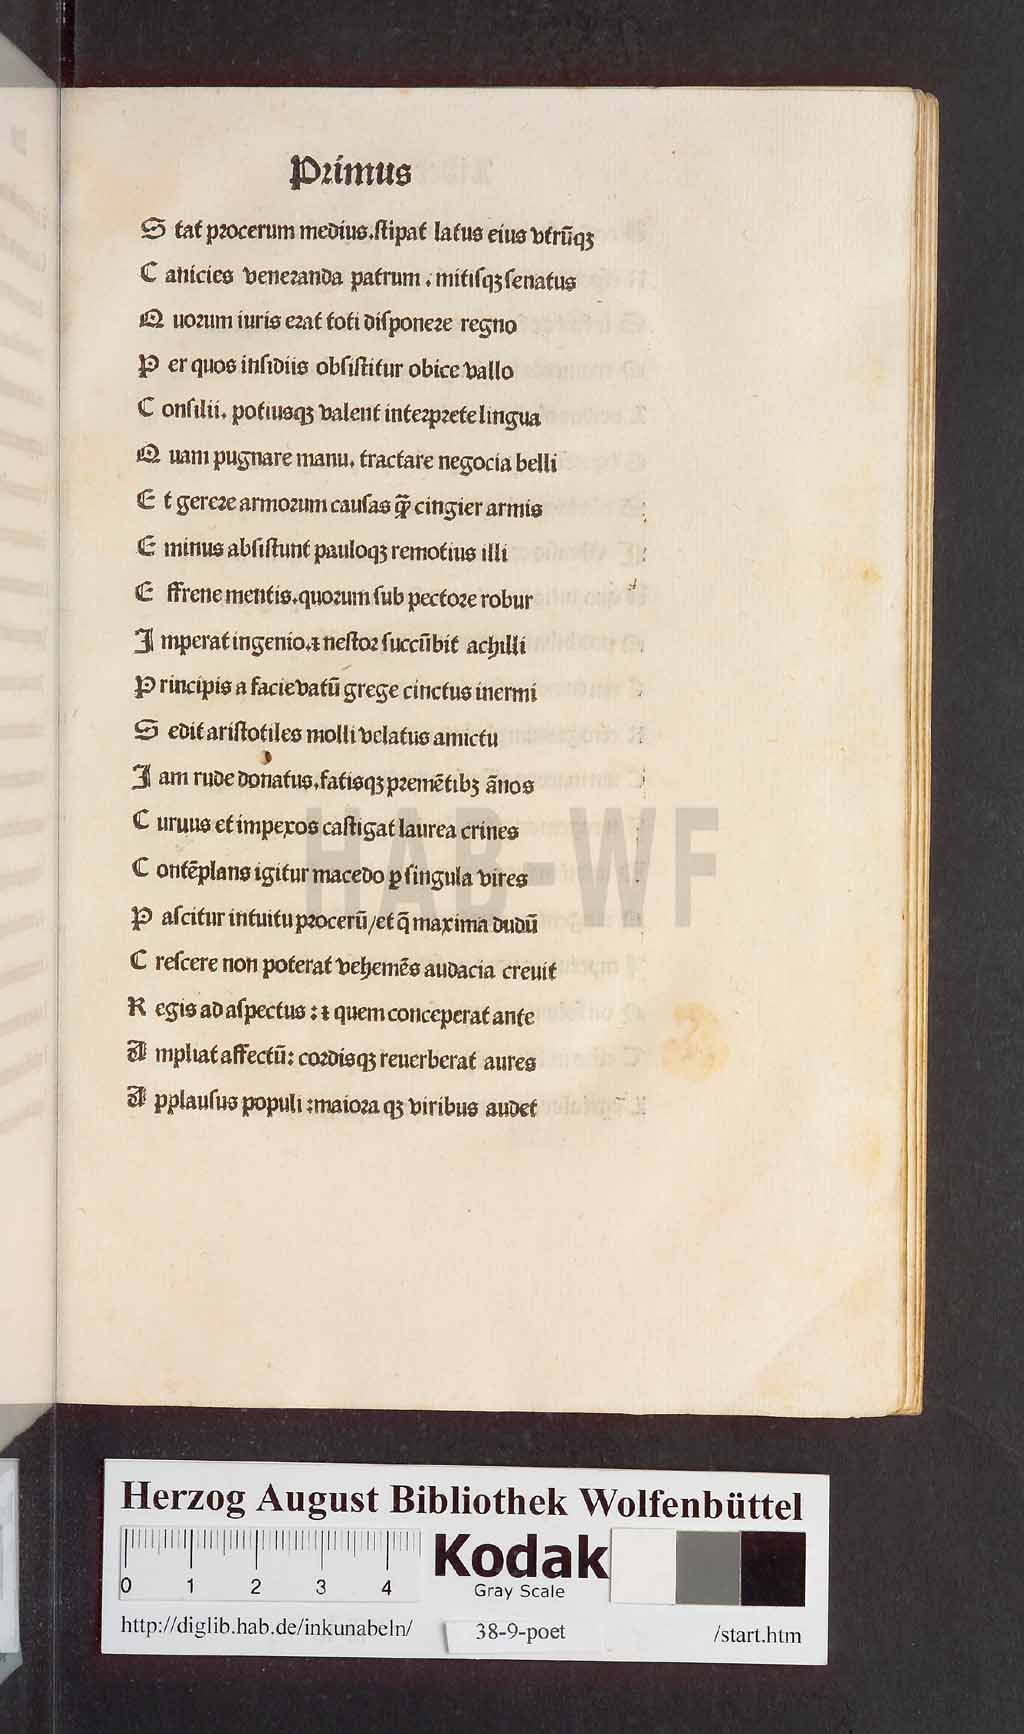 Primus
S tat procerum medius.ſtipat latus eius vtrũqꝫ
C anicies veneranda patrum . mitiſqꝫ ſenatus
Q uorum iuris erat toti diſponere regno
P er quos inſidiis obſiſtitur obice vallo
C onſilii. potiusqꝫ valent interprete lingua
Q uam pugnare manu. tractare negocia belli
E t gerere armorum cauſas qꝫ̃ cingier armis
E minus abſiſtunt pauloqꝫ remotius illi
E ffrene mentis.quorum ſub pectore robur
I mperat ingenio.⁊ neſtor ſuccũbit achilli
P rincipis a facie vatũ grege cinctus inermi
S edit ariſtotiles molli velatus amictu
I am rude donatus.fatisqꝫ premẽtibꝫ ãnos
C uruus et impexos caſtigat laurea crines
C ontẽplans igitur macedo ꝑ ſingula vires
P aſcitur intuitu procerũ/et q̃ maxima dudũ
C reſcere non poterat vehemẽs audacia creuit
R egis ad aſpectus : ⁊ quem conceperat ante
A mpliat affectũ: cordisqꝫ reuerberat aures
A pplauſus populi :maiora qꝫ viribus audet
HAB-WF
Herzog August Bibliothek Wolfenbüttel
0 1 2 3 4
Kodak
Gray Scale
http://diglib.hab.de/inkunabeln/ 38-9-poet /start.htm